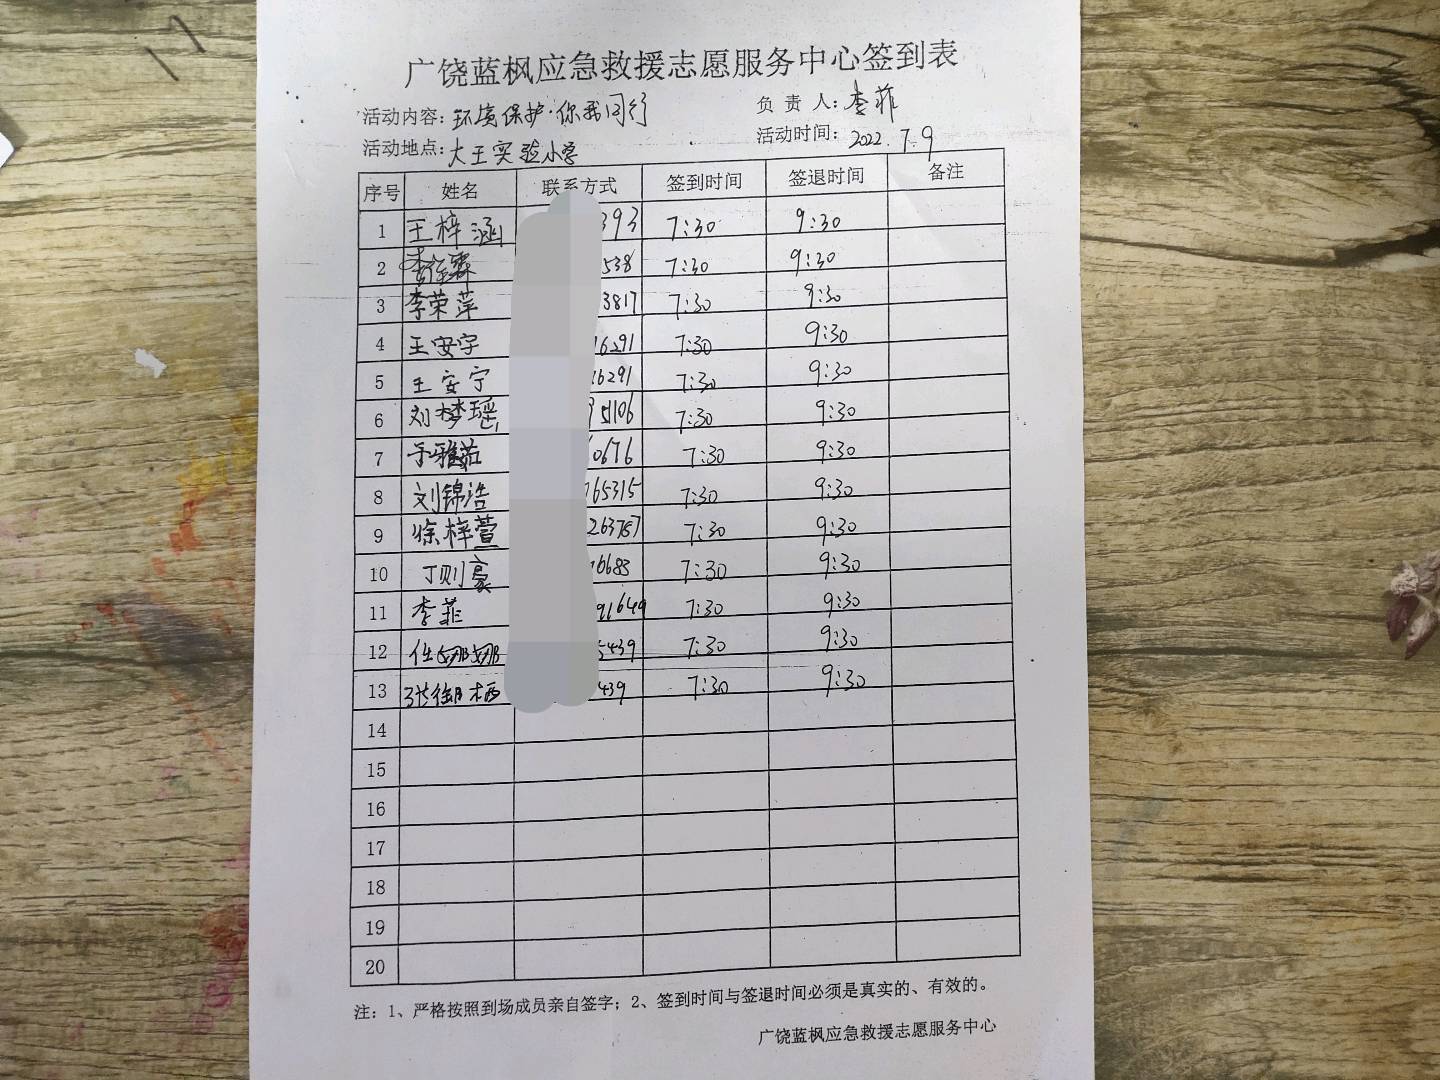 广饶蓝枫应急救援志愿服务中心签到表
活动内容：环境保护·你我同行 负责人：李菲
活动地点：大王实验小学 活动时间：2022.7.9
序号 姓名 联系方式 签到时间 签退时间 备注
1 王梓涵 393 7:30 9:30
2 538 7:30 9:30
3 李荣萍 3817 7:30 9:30
4 王安宇 16291 7:30 9:30
5 王安宁 16291 7:30 9:30
6 刘梦瑶 95106 7:30 9:30
7 于雅茹 60676 7:30 9:30
8 刘锦浩 765315 7:30 9:30
9 徐梓萱 263787 7:30 9:30
10 丁则豪 76683 7:30 9:30
11 李菲 91649 7:30 9:30
12 任娜娜 5439 7:30 9:30
13 439 7:30 9:30
14
15
16
17
18
19
20
注：1、严格按照到场成员亲自签字；2、签到时间与签退时间必须是真实的、有效的。
广饶蓝枫应急救援志愿服务中心